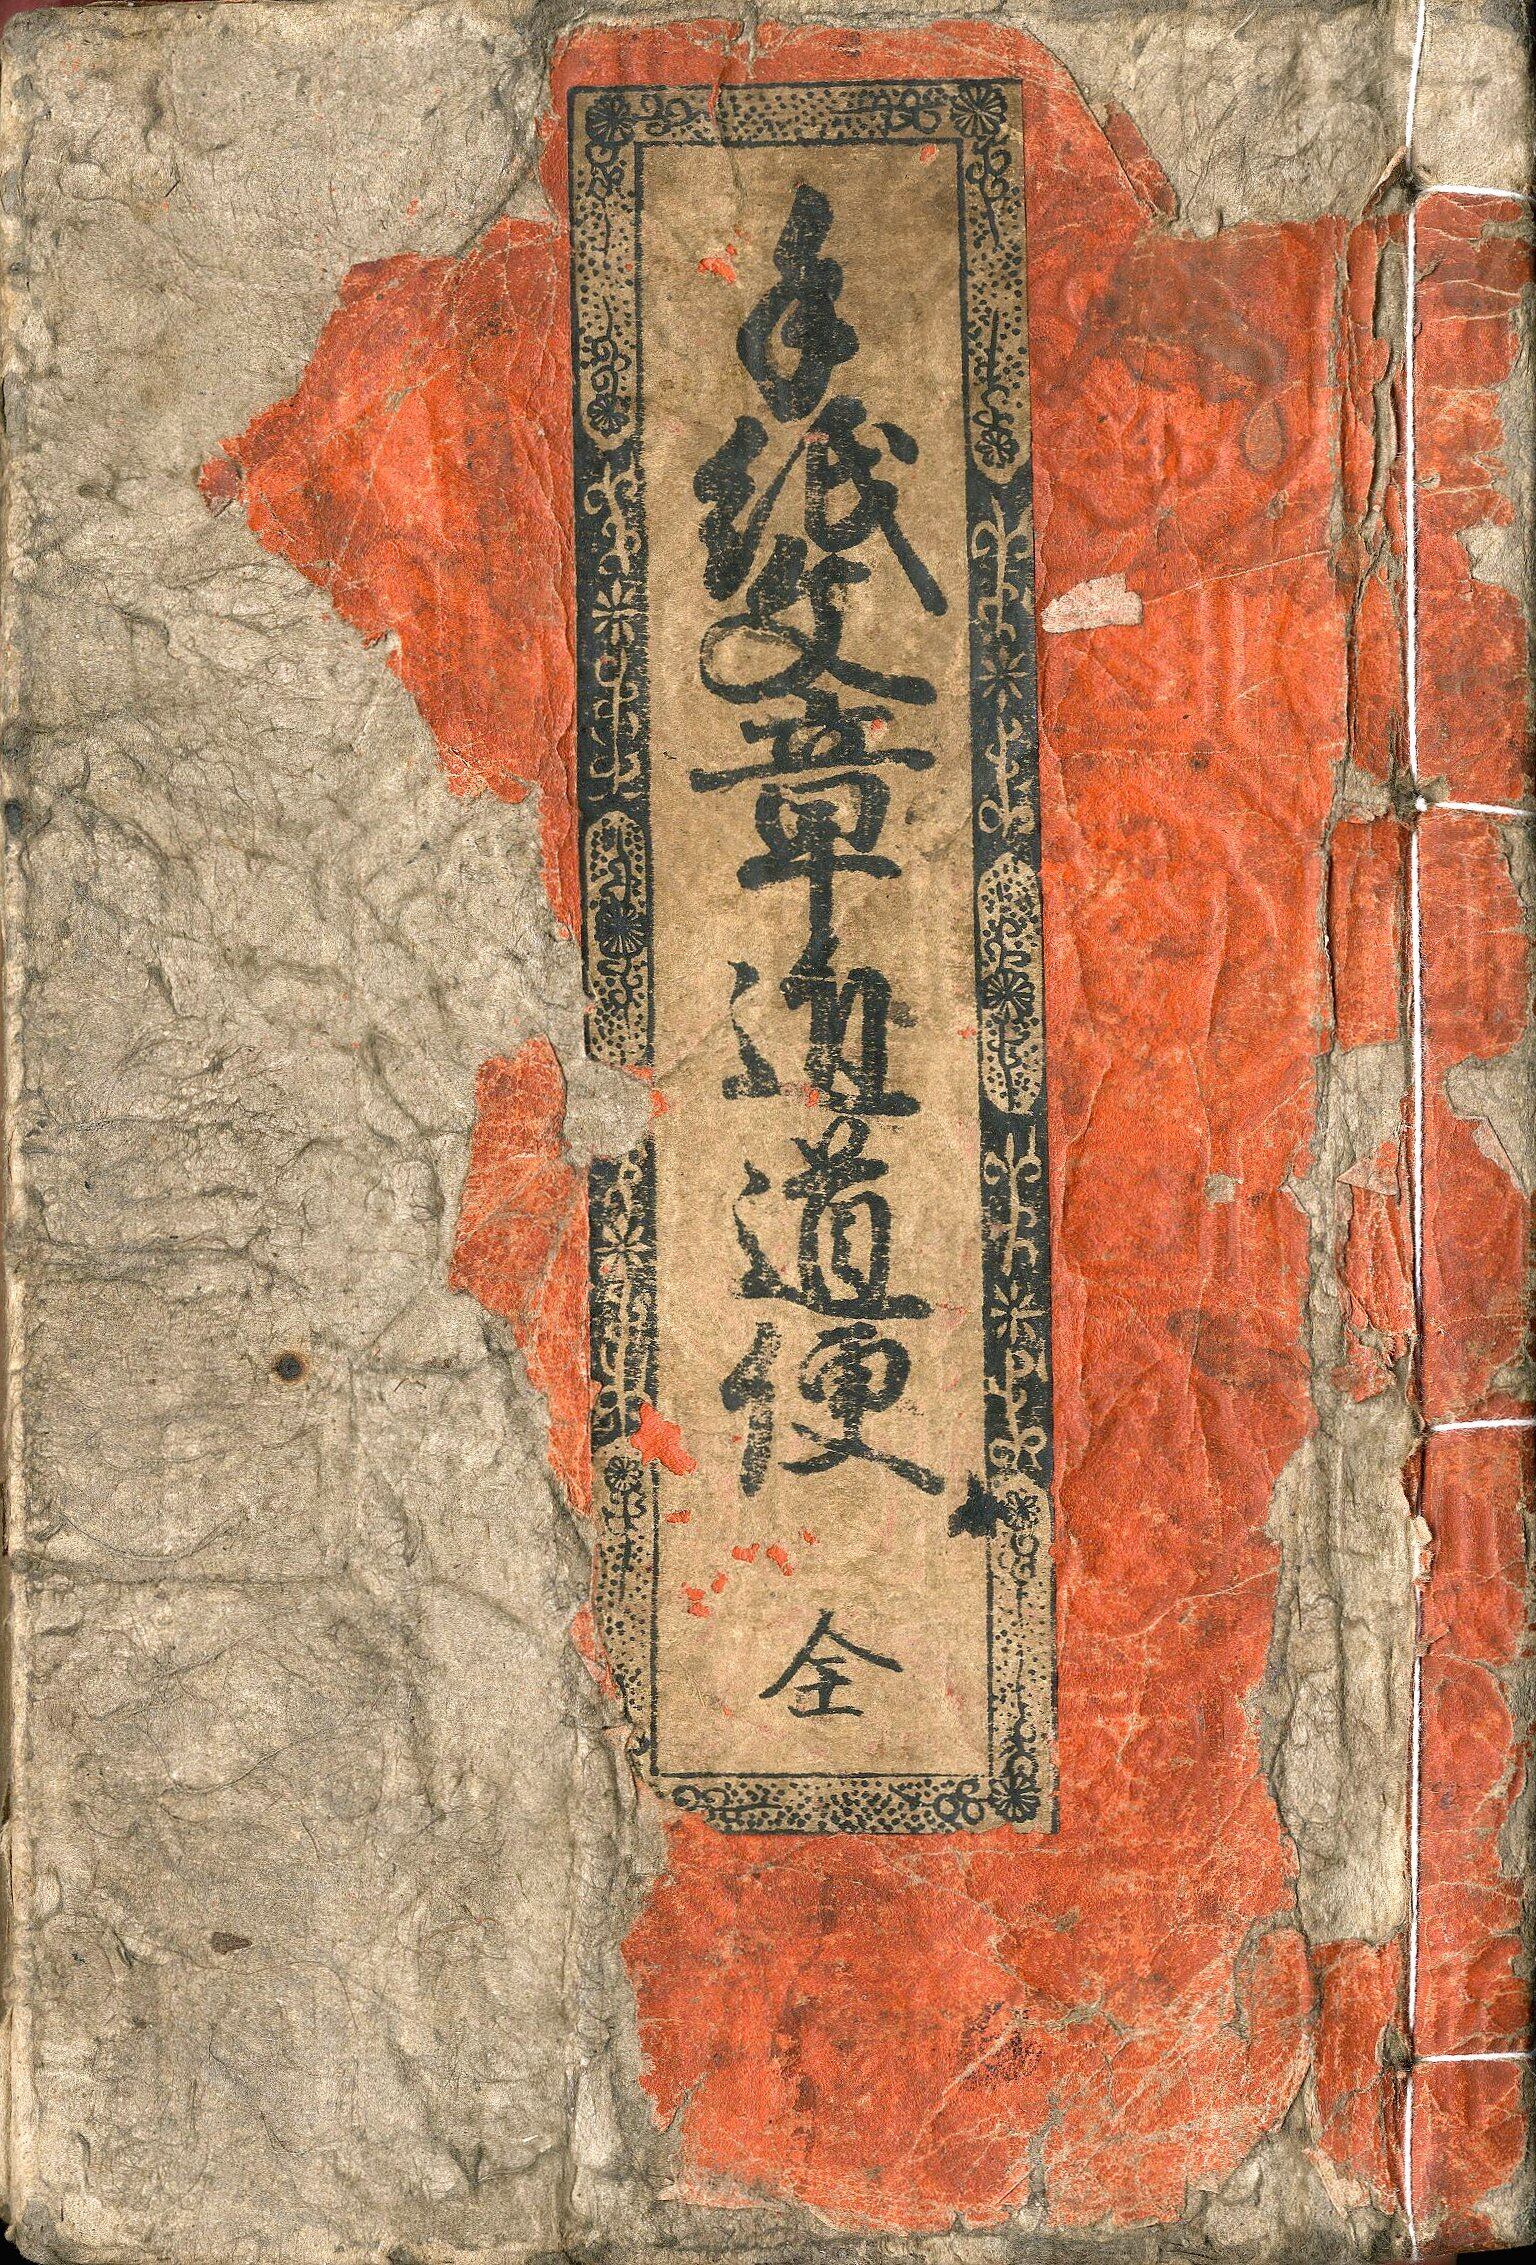 手紙文章道便
全